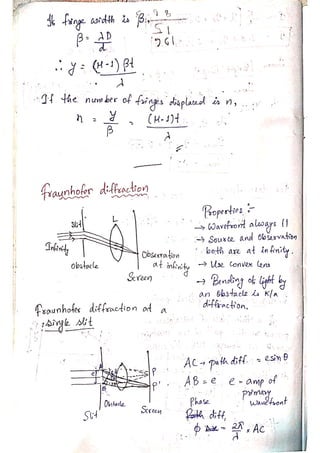 If fringe width is β,
β = λD
d
∴ y = (μ-1) βt
λ
If the number of fringes displaced is n,
n = y = (μ-1)t
β λ
Fraunhofer diffraction
Slit L
Infinity
Obstacle
Observation
at infinity
Screen
Properties :-
→ Wavefront always ||
→ Source and Observation
both are at infinity.
→ Use convex lens
→ Bending of light by
an obstacle is k/a
diffraction.
Fraunhofer diffraction at a
single slit
P
P'
Obstacle
Slit
Screen
AC → path diff. = e sin θ
AB = e e = amp of
primary
wavefront
Phase
Path diff,
φ = 2π × AC
λ